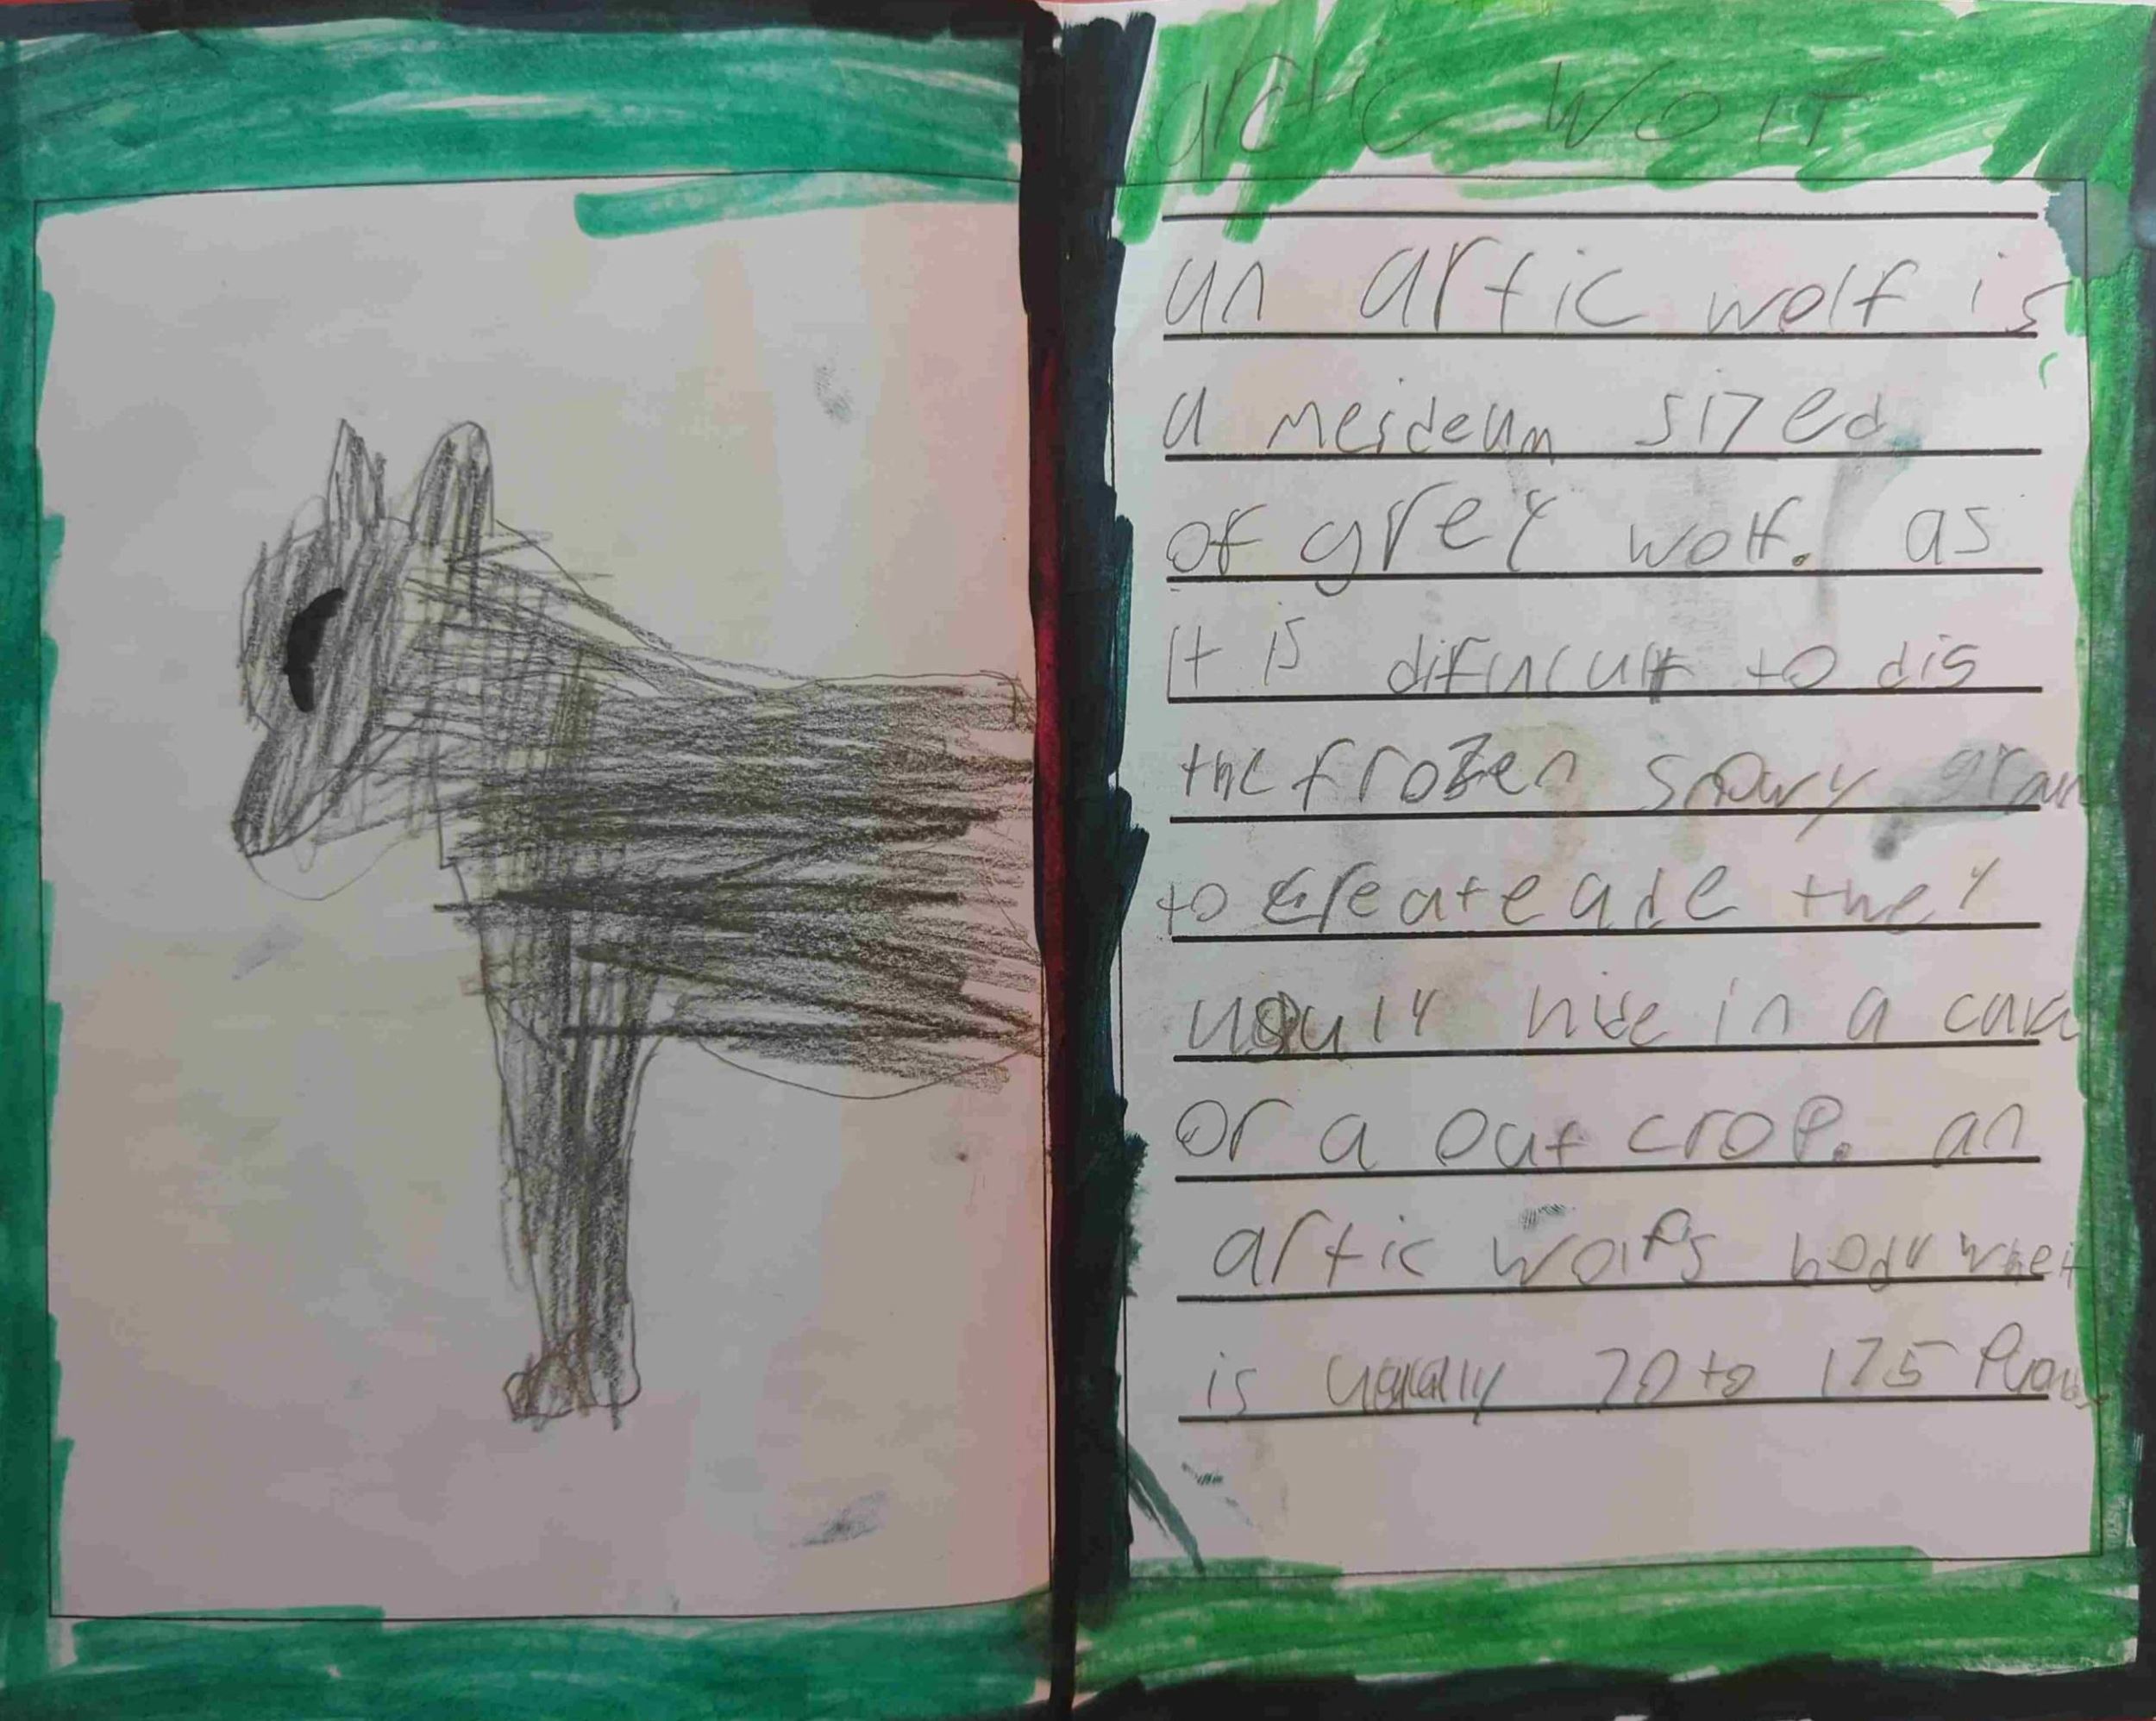 arctic wolf
an artic wolf is
a meideum sized
of grey wolf. as
it is dificult to dis
the frozen snowy groun
to create a de they
usuly hide in a cave
or a out crop. an
artic wolfs body wheit
is usually 70 to 175 Puons